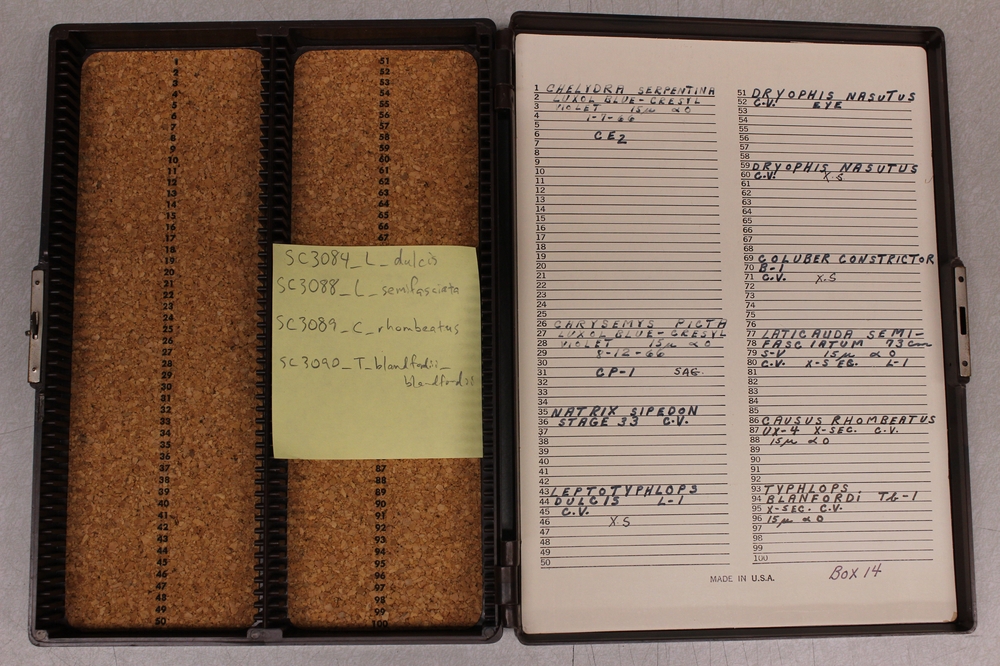 1
2
3
4
5
6
7
8
9
10
11
12
13
14
15
16
17
18
19
20
21
22
23
24
25
26
27
28
29
30
31
32
33
34
35
36
37
38
39
40
41
42
43
44
45
46
47
48
49
50
51
52
53
54
55
56
57
58
59
60
61
62
63
64
65
66
67
SC3084_L_dulcis
SC3088_L_semifasciata
SC3089_C_rhombeatus
SC3090_T_blandfordii_
blandfordii
87
88
89
90
91
92
93
94
95
96
97
98
99
100
1 CHELYDRA SERPENTINA
2 LUXOL BLUE-CRESYL
3 VIOLET 15µ αO
4 1-7-66
5
6 CE2
7
8
9
10
11
12
13
14
15
16
17
18
19
20
21
22
23
24
25
26 CHRYSEMYS PICTA
27 LUXOL BLUE-CRESYL
28 VIOLET 15µ αO
29 8-12-66
30
31 CP-1 SAG.
32
33
34
35 NATRIX SIPEDON
36 STAGE 33 C.V.
37
38
39
40
41
42
43 LEPTOTYPHLOPS
44 DULCIS L-1
45 C.V.
46 X.S
47
48
49
50
51 DRYOPHIS NASUTUS
52 C.V. EYE
53
54
55
56
57
58
59 DRYOPHIS NASUTUS
60 C.V. X.S
61
62
63
64
65
66
67
68
69 COLUBER CONSTRICTOR
70 B-1
71 C.V. X.S
72
73
74
75
76
77 LATICAUDA SEMI-
78 FASCIATUM 73cm
79 S-V 15µ αO
80 C.V. X-SEC. L-1
81
82
83
84
85
86 CAUSUS RHOMBEATUS
87 UX-4 X-SEC. C.V.
88 15µ αO
89
90
91
92
93 TYPHLOPS
94 BLANFORDI TG-1
95 X-SEC. C.V.
96 15µ αO
97
98
99
100
MADE IN U.S.A.
Box 14